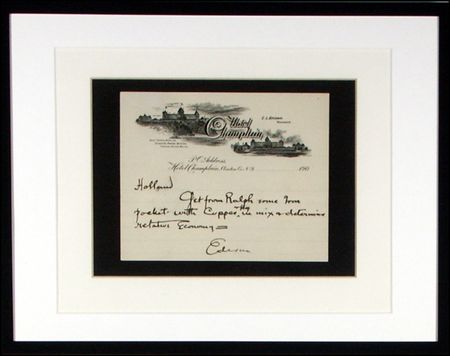 Hotel
Champlain
P.O. Address,
Hotel Champlain, Clinton Co. N.Y. 190
Holland
Get from Ralph some Iron
pocket with Copper, Hg in mix & determine
relative Economy =
Edison